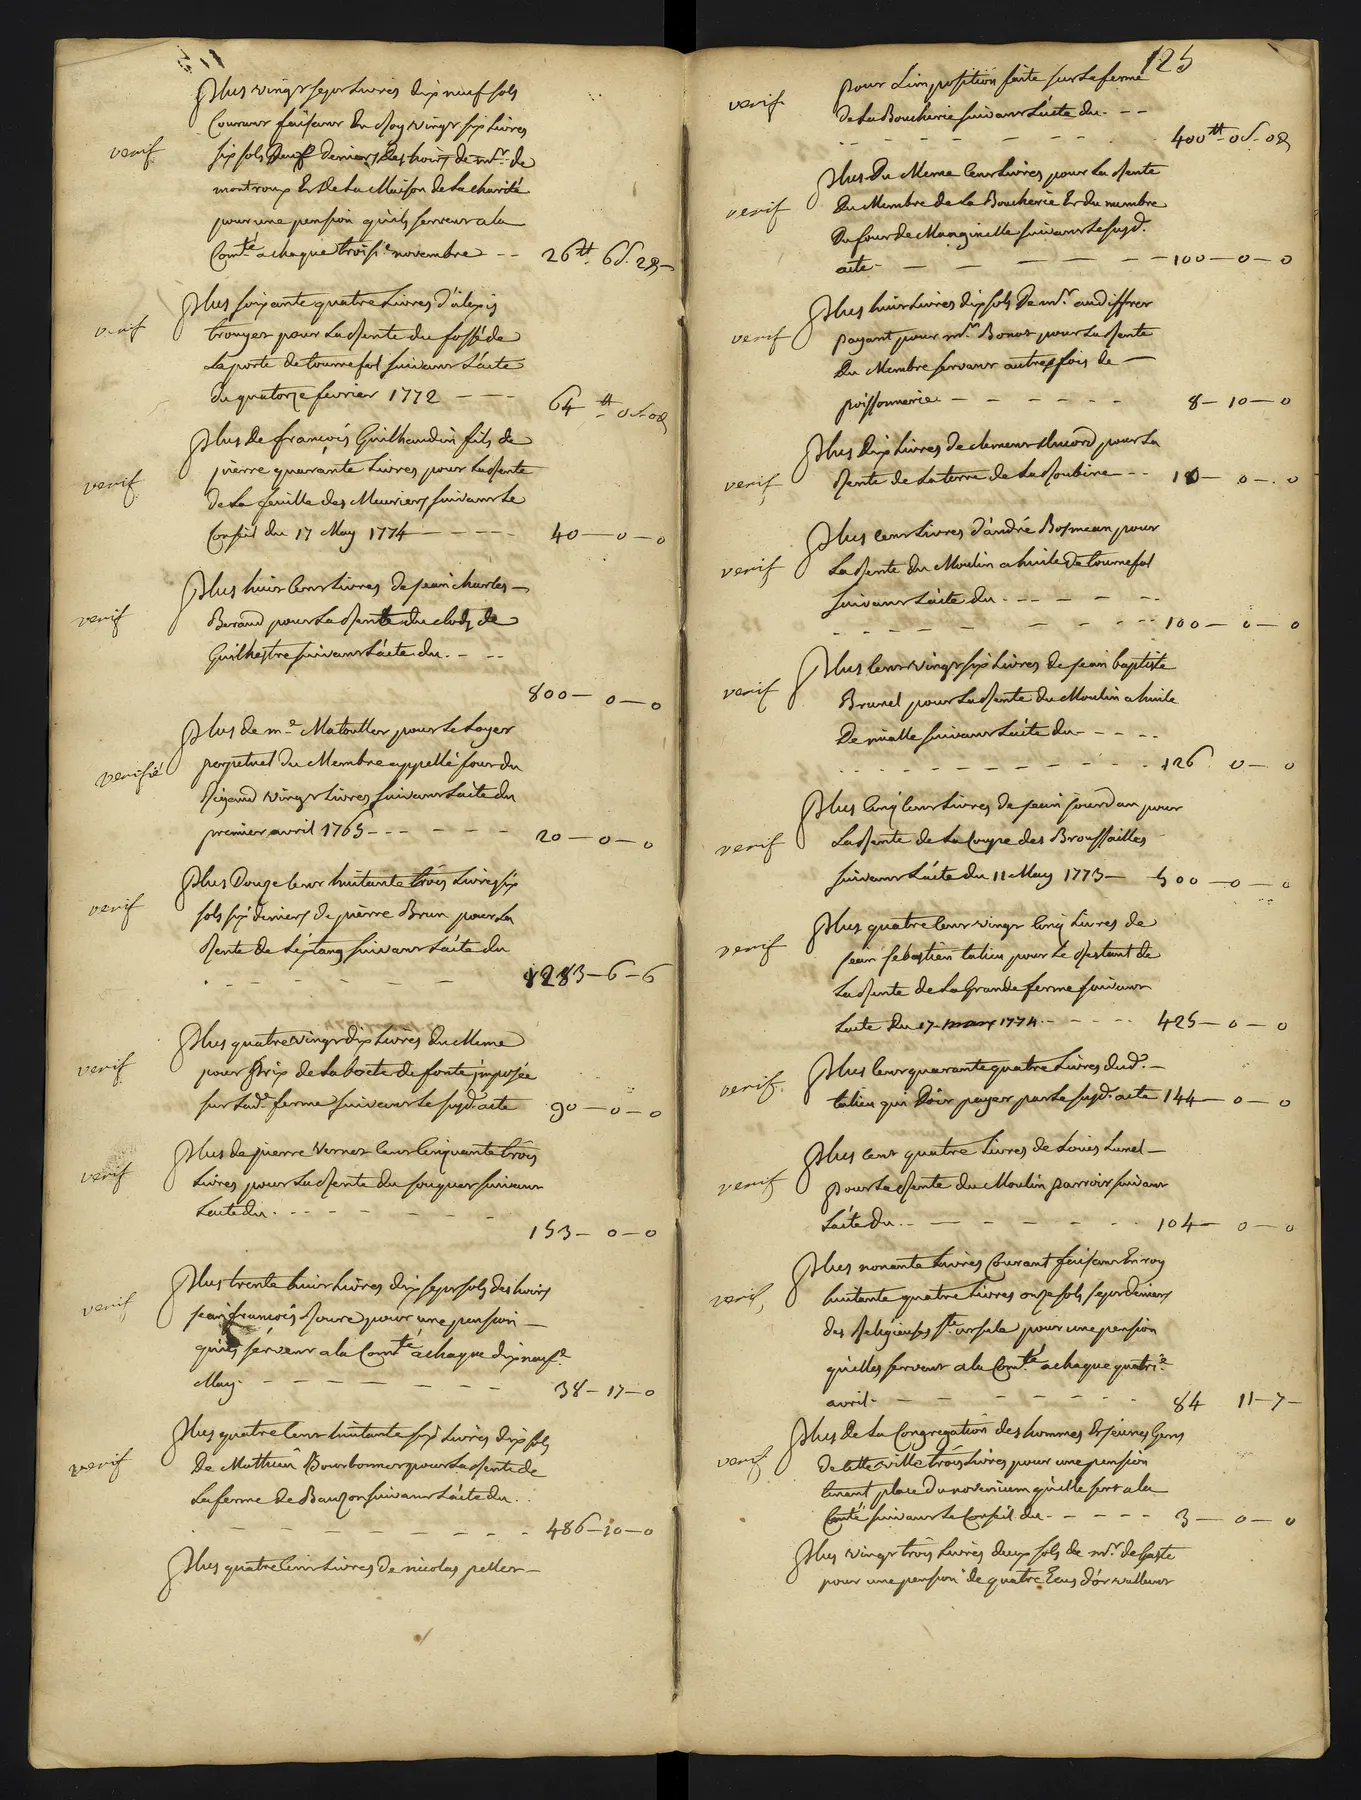 Plus vingt sept Livres dix neuf sols
Courant faisant En Roy vingt six Livres
verif
six sols neuf deniers des hoirs de mr. de
montroux Et de la Maison de la charité
pour une pension qu'ils servent a la
Comté a chaque troisie novembre -- 26tt. 6s. 2d
Plus soixante quatre Livres d'alexis
verif
trouyer pour La Rente du fossé de
La porte de tournefort suivant L'acte
du quatorze fevrier 1772 --- 64tt - 0s - 0d
Plus de françois Guilhaudin fils de
pierre quarante Livres pour La Rente
verif
de La feuille des Meuriers suivant Le
Conseil du 17 May 1774 ----- 40 - 0 - 0
Plus huit Cent Livres de jean charles
verif
Beraud pour La Rente du clos de
Guilhestre suivant L'acte du. - --
800 - 0 - 0
Plus de me. Matouller pour Le Loyer
verifié
perpetuel du Membre appellé four du
Rigaud vingt Livres suivant L'acte du
premier avril 1765 ------ 20 - 0 - 0
Plus Douze Cent huitante trois Livres six
verif
sols six deniers de pierre Brun pour La
Rente de L'éstang suivant L'acte du
------ 1283 - 6 - 6
Plus quatre vingt dix Livres du Meme
verif
pour prix de La boete de fonte imposée
sur Lade. ferme suivant Le susd. acte 90 - 0 - 0
Plus de pierre vernet Cent Cinquante trois
verif
Livres pour La Rente du souquet suivant
L'acte du. ------
153 - 0 - 0
Plus trente huit Livres dix sept sols des hoirs
verif
jean françois Roure pour une pension
qu'ils servent a la Comté a chaque dix neufe.
May. ------- 38 - 17 - 0
Plus quatre Cent huitante six Livres dix sols
verif
De Mathieu Bourbonner pour La Rente de
La ferme de Bauzon suivant L'acte du.
--------- 486 - 10 - 0
Plus quatre Cent Livres de nicolas peller
125
verif
pour L'imposition faite sur La ferme
de La Boucherie suivant L'acte du. --
------ 400tt - 0s - 0d
Plus Du Meme Cent Livres pour La Rente
verif
Du Membre de La Boucherie Et du membre
du four de Manginelle suivant Le susd.
acte. ------ 100 - 0 - 0
Plus huit Livres dix sols De mr. audiffret
verif
payant pour mr. Bonot pour La Rente
Du Membre servant autres fois de
poissonnerie ------ 8 - 10 - 0
Plus Dix Livres de clement Ricord pour La
verif
Rente de La terre de La Roubine -- 10 - 0 - 0
Plus Cent Livres d'andré Bosmean pour
verif
La Rente du Moulin a huile de tournefort
suivant L'acte du. ------
------ 100 - 0 - 0
Plus Cent vingt six Livres de jean baptiste
verif
Brunel pour La Rente du Moulin a huile
De suivant L'acte du. -----
--------- 126 0 - 0
Plus Cinq Cent Livres de jean jourdan pour
verif
La Rente de La Coupe des Broussailles
suivant L'acte du 11 May 1773 - 500 - 0 - 0
Plus quatre Cent vingt Cinq Livres de
verif
jean sébastien talieu pour Le Restant de
La Rente de La Grande ferme suivant
L'acte du 17 mars 1774. ---- 425 - 0 - 0
Plus Cent quarante quatre Livres dud.
verif
talieu qui Doit payer par Le susd. acte 144 - 0 - 0
Plus cent quatre Livres de Louis Lunel
verif
pour La Rente du Moulin parroir suivant
L'acte du. ------ 104 - 0 - 0
Plus nonante Livres Courant faisant En roy
verif,
huitante quatre Livres onze sols sept deniers
des Religieuses Ste. ursule pour une pension
qu'elles servent a la Comté a chaque quatrie.
avril. ------- 84 11 - 7
Plus de La Congregation des hommes Et jeunes Gens
verif
de cette ville trois Livres pour une pension
tenant place du novenium qu'elle sert a la
Comté suivant Le Conseil du. ----- 3 - 0 - 0
Plus vingt trois Livres deux sols de mr. de Gaste
pour une pension de quatre Ecus d'or vallent